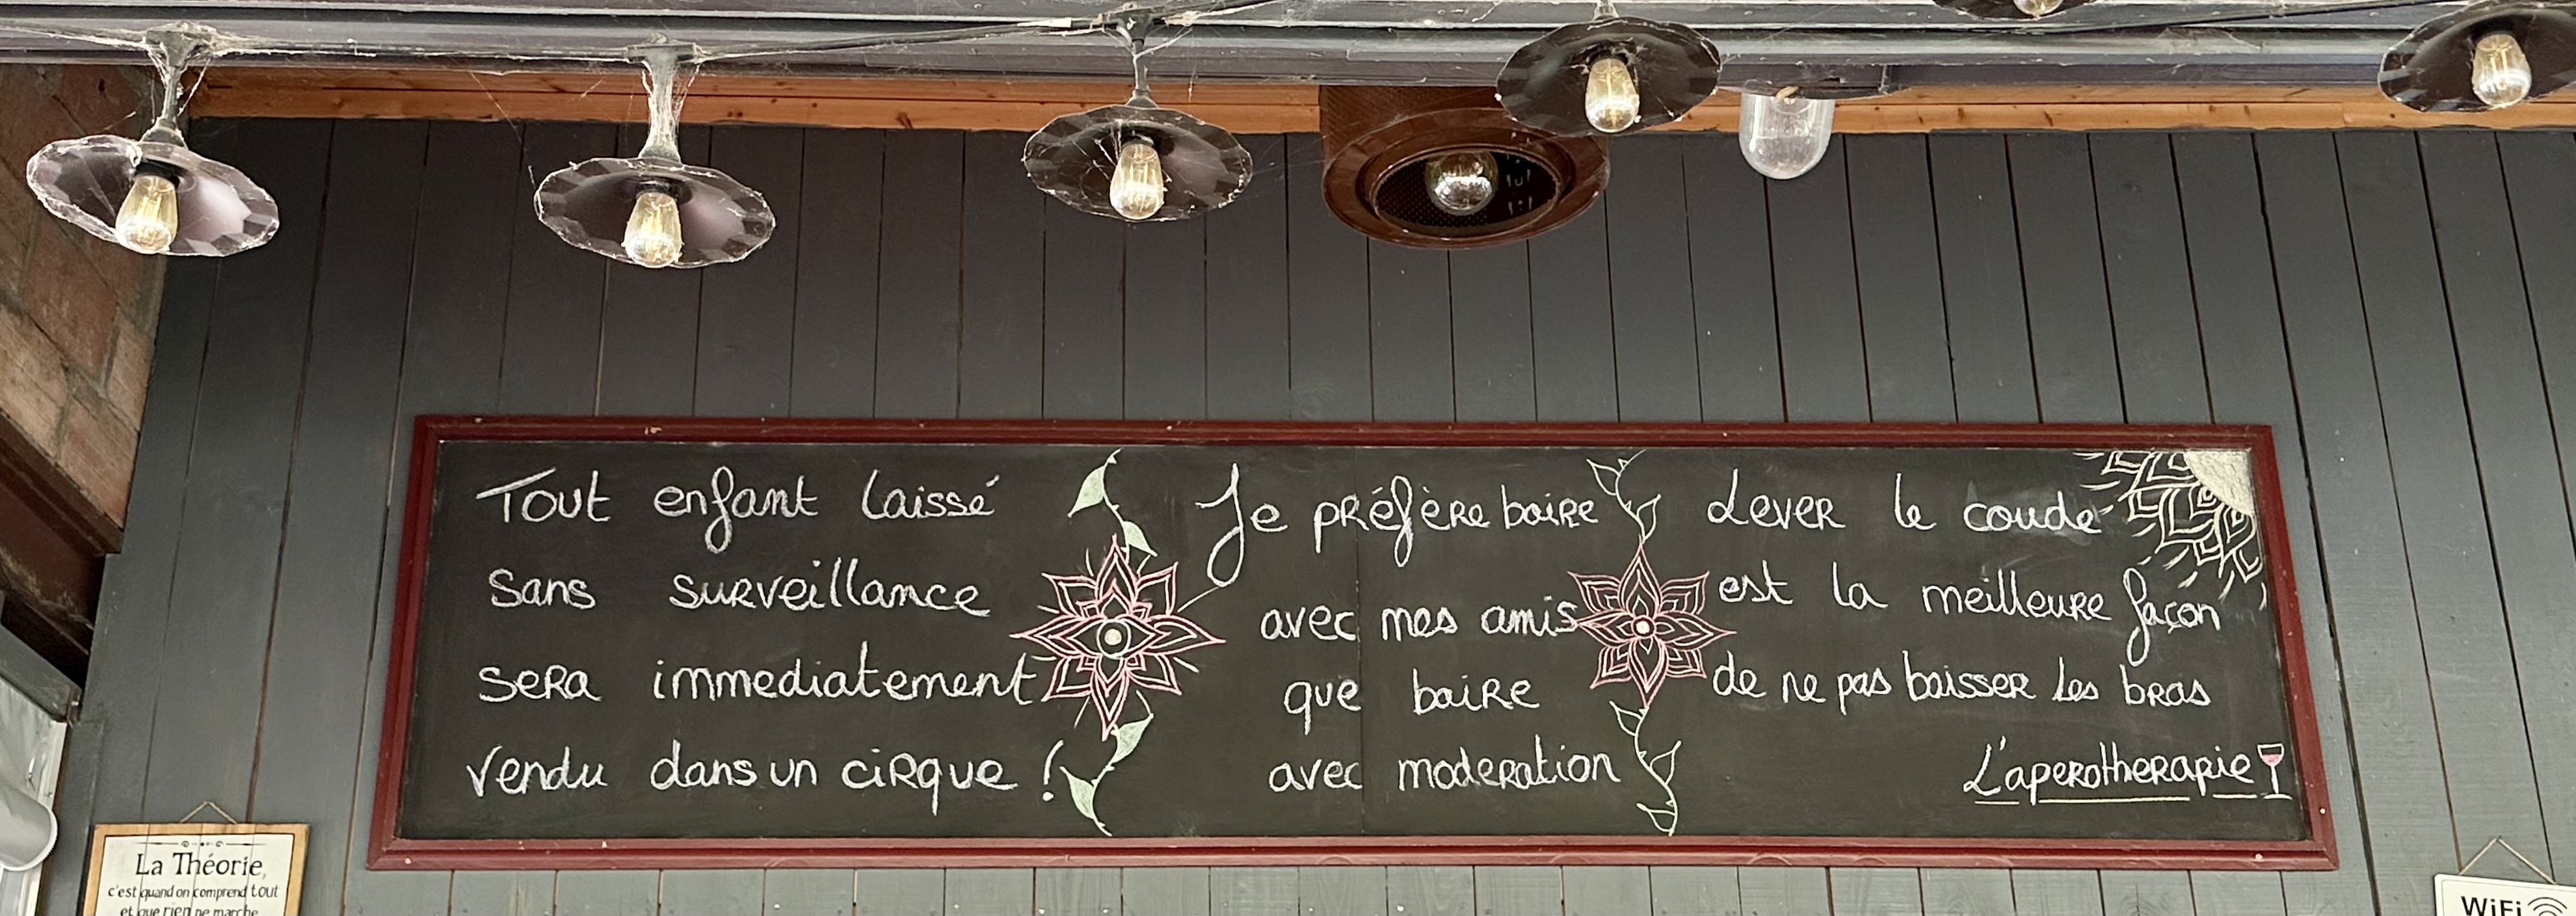 Tout enfant laissé
sans surveillance
sera immediatement
vendu dans un cirque !
Je préfère boire
avec mes amis
que boire
avec moderation
Lever le coude
est la meilleure façon
de ne pas baisser les bras
L'aperotherapie
La Théorie,
c'est quand on comprend tout
et que rien ne marche
WiFi